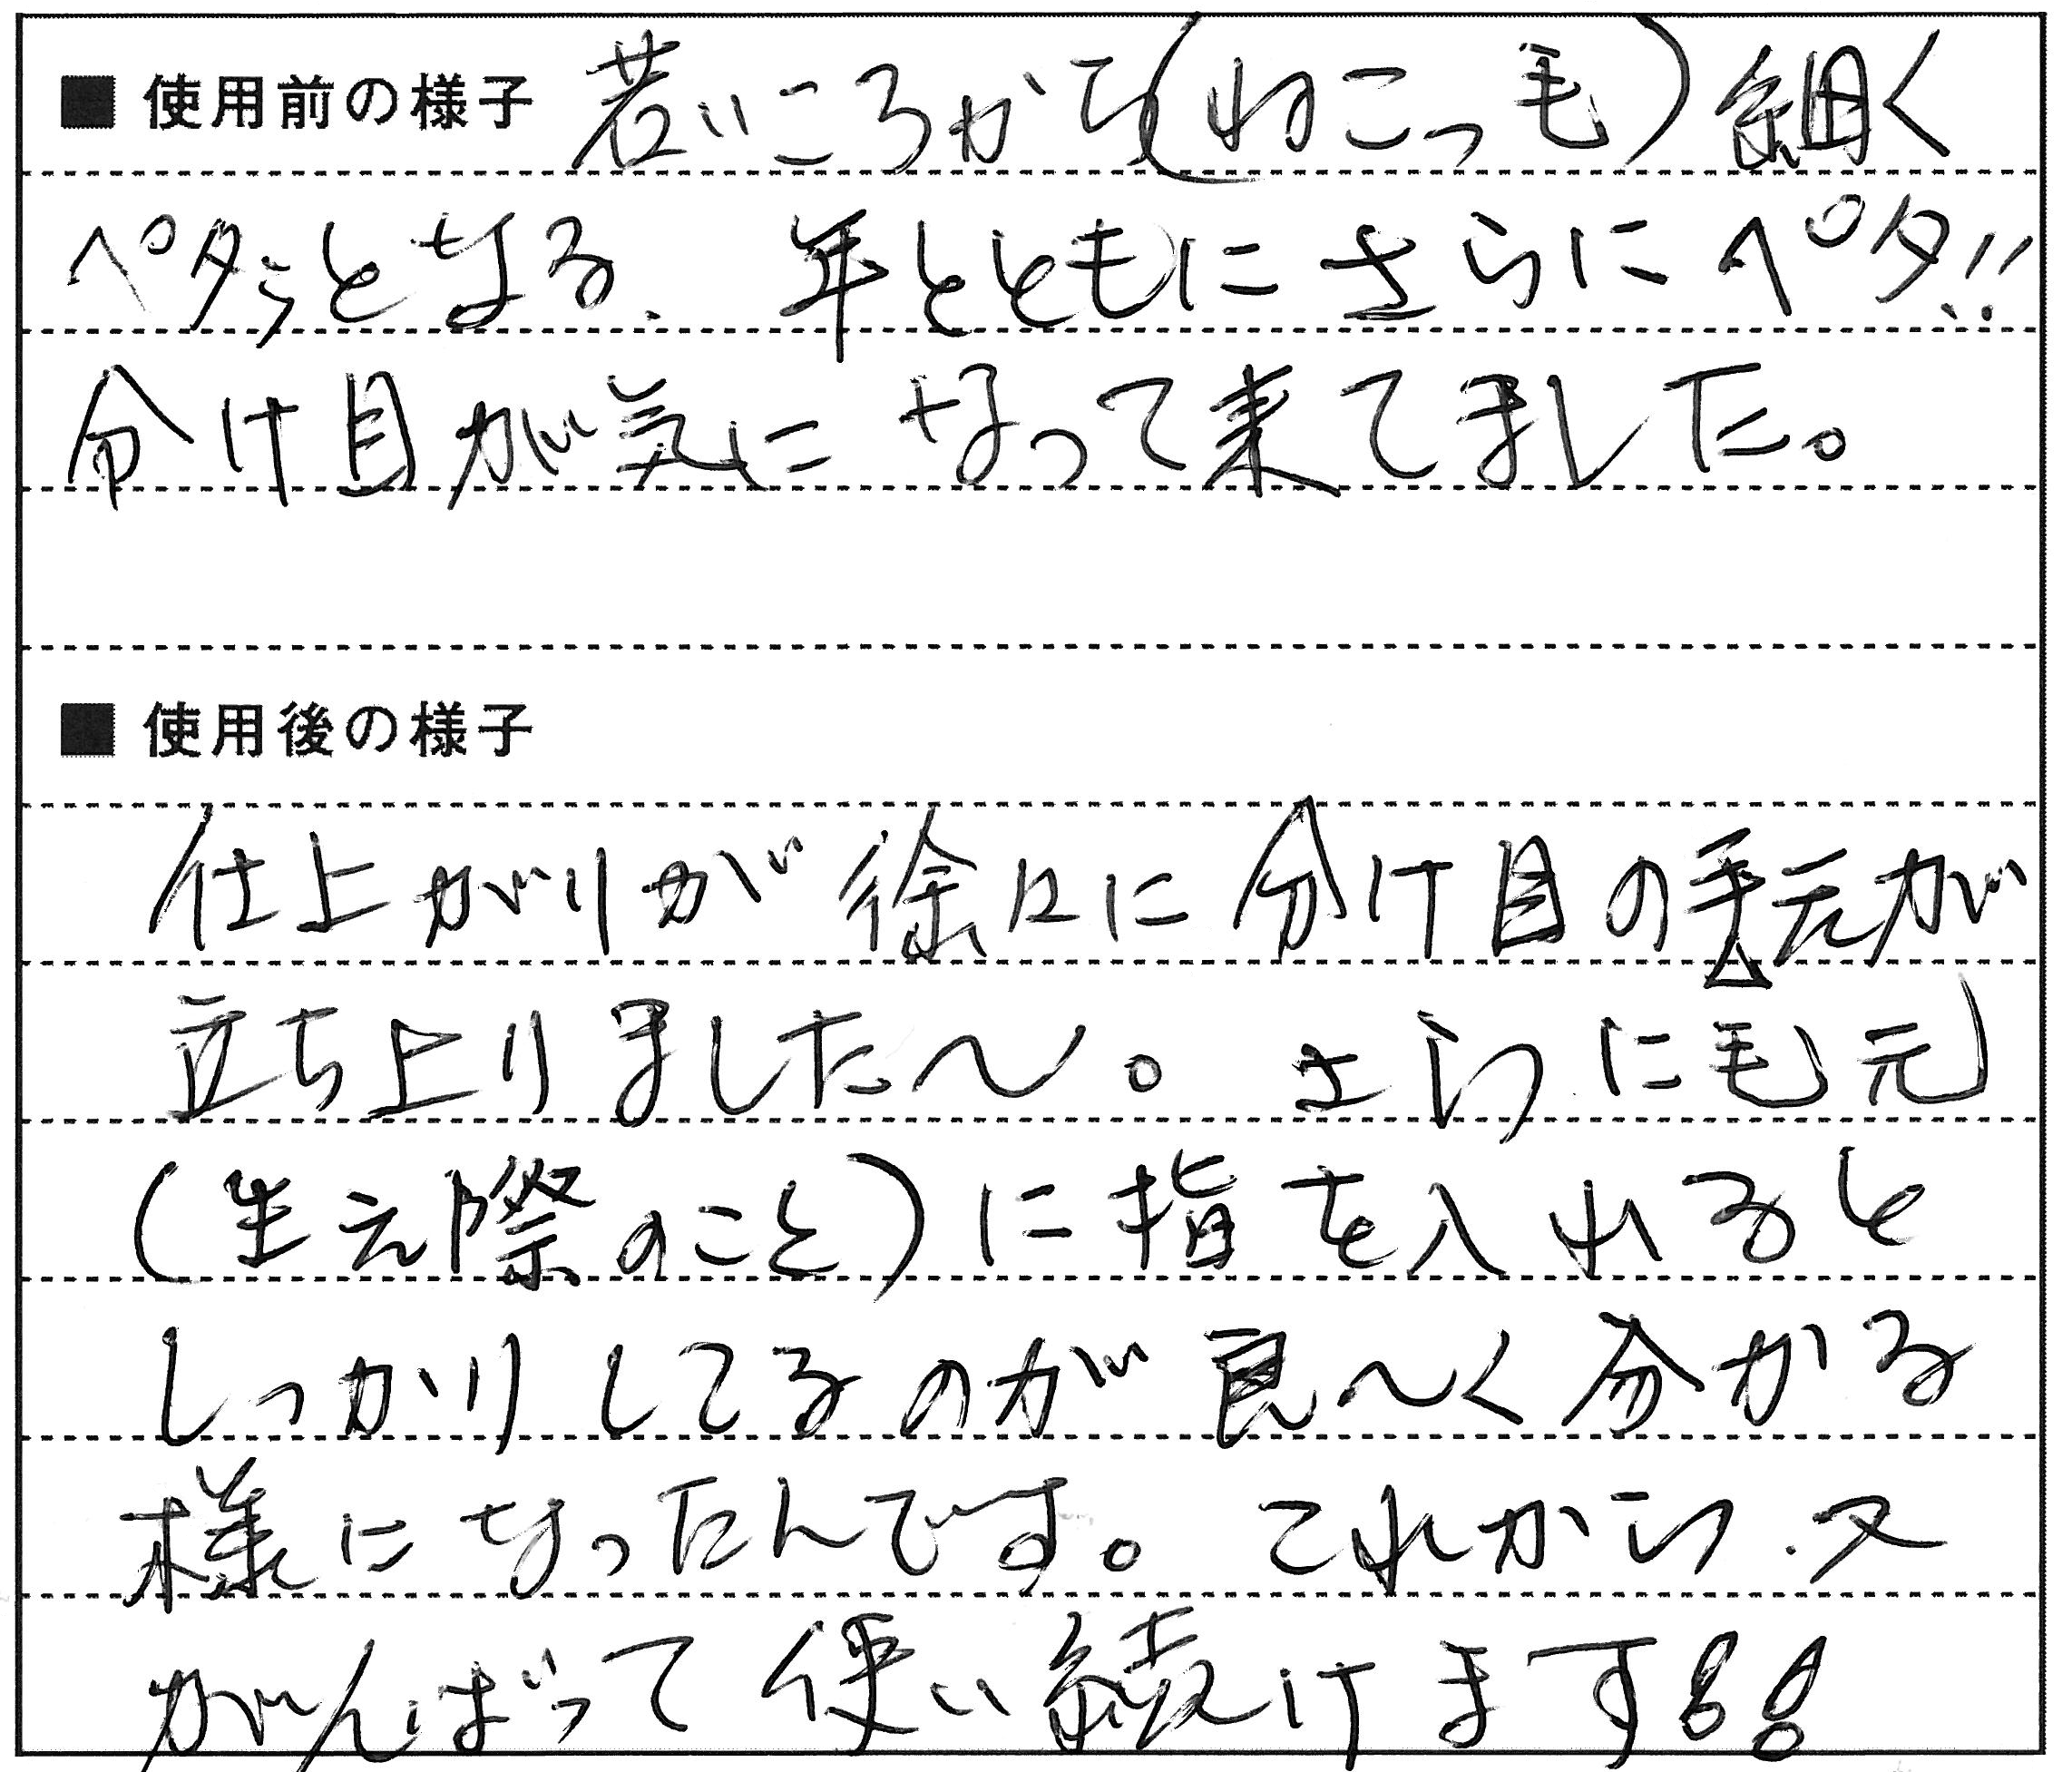 ■ 使用前の様子 若いころから(ねこっ毛)細く
ペタうとなる、年とともにさらにペタ!!
分け目が気になって来てました。
■ 使用後の様子
仕上がりが徐々に分け目の毛元が
立ち上りました〜。さらに毛元
(生え際のこと)に指を入れると
しっかりしてるのが良〜く分かる
様になったんです。これから、又
がんばって使い続けます!!